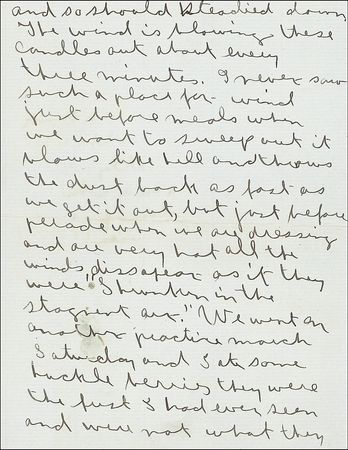 and so should steadied down
The wind is blowing these
candles out about every
three minutes. I never saw
such a place for wind
just before meals when
we want to sweep out it
blows like hell and throws
the dust back as fast as
we get it out, but just before
perade when we are dressing
and are very hot all the
winds, dissapear as if they
were "Shrunken in the
stagnent air." We went on
another practice march
Saturday and I ate some
huckle berries they were
the first I had ever seen
and were not what they